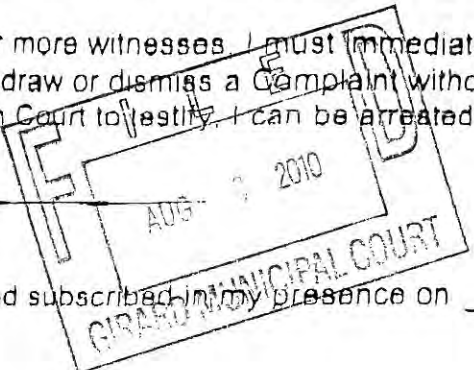 r more witnesses, I must immediat
draw or dismiss a Complaint witho
n Court to testify, I can be arrested
FILED
AUG 2010
GIRARD MUNICIPAL COURT
d subscribed in my presence on